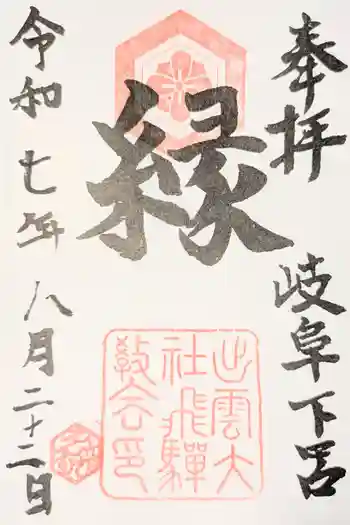 奉拝
岐阜下呂
縁
出雲大
社飛騨
教会印
令和七年八月二十二日